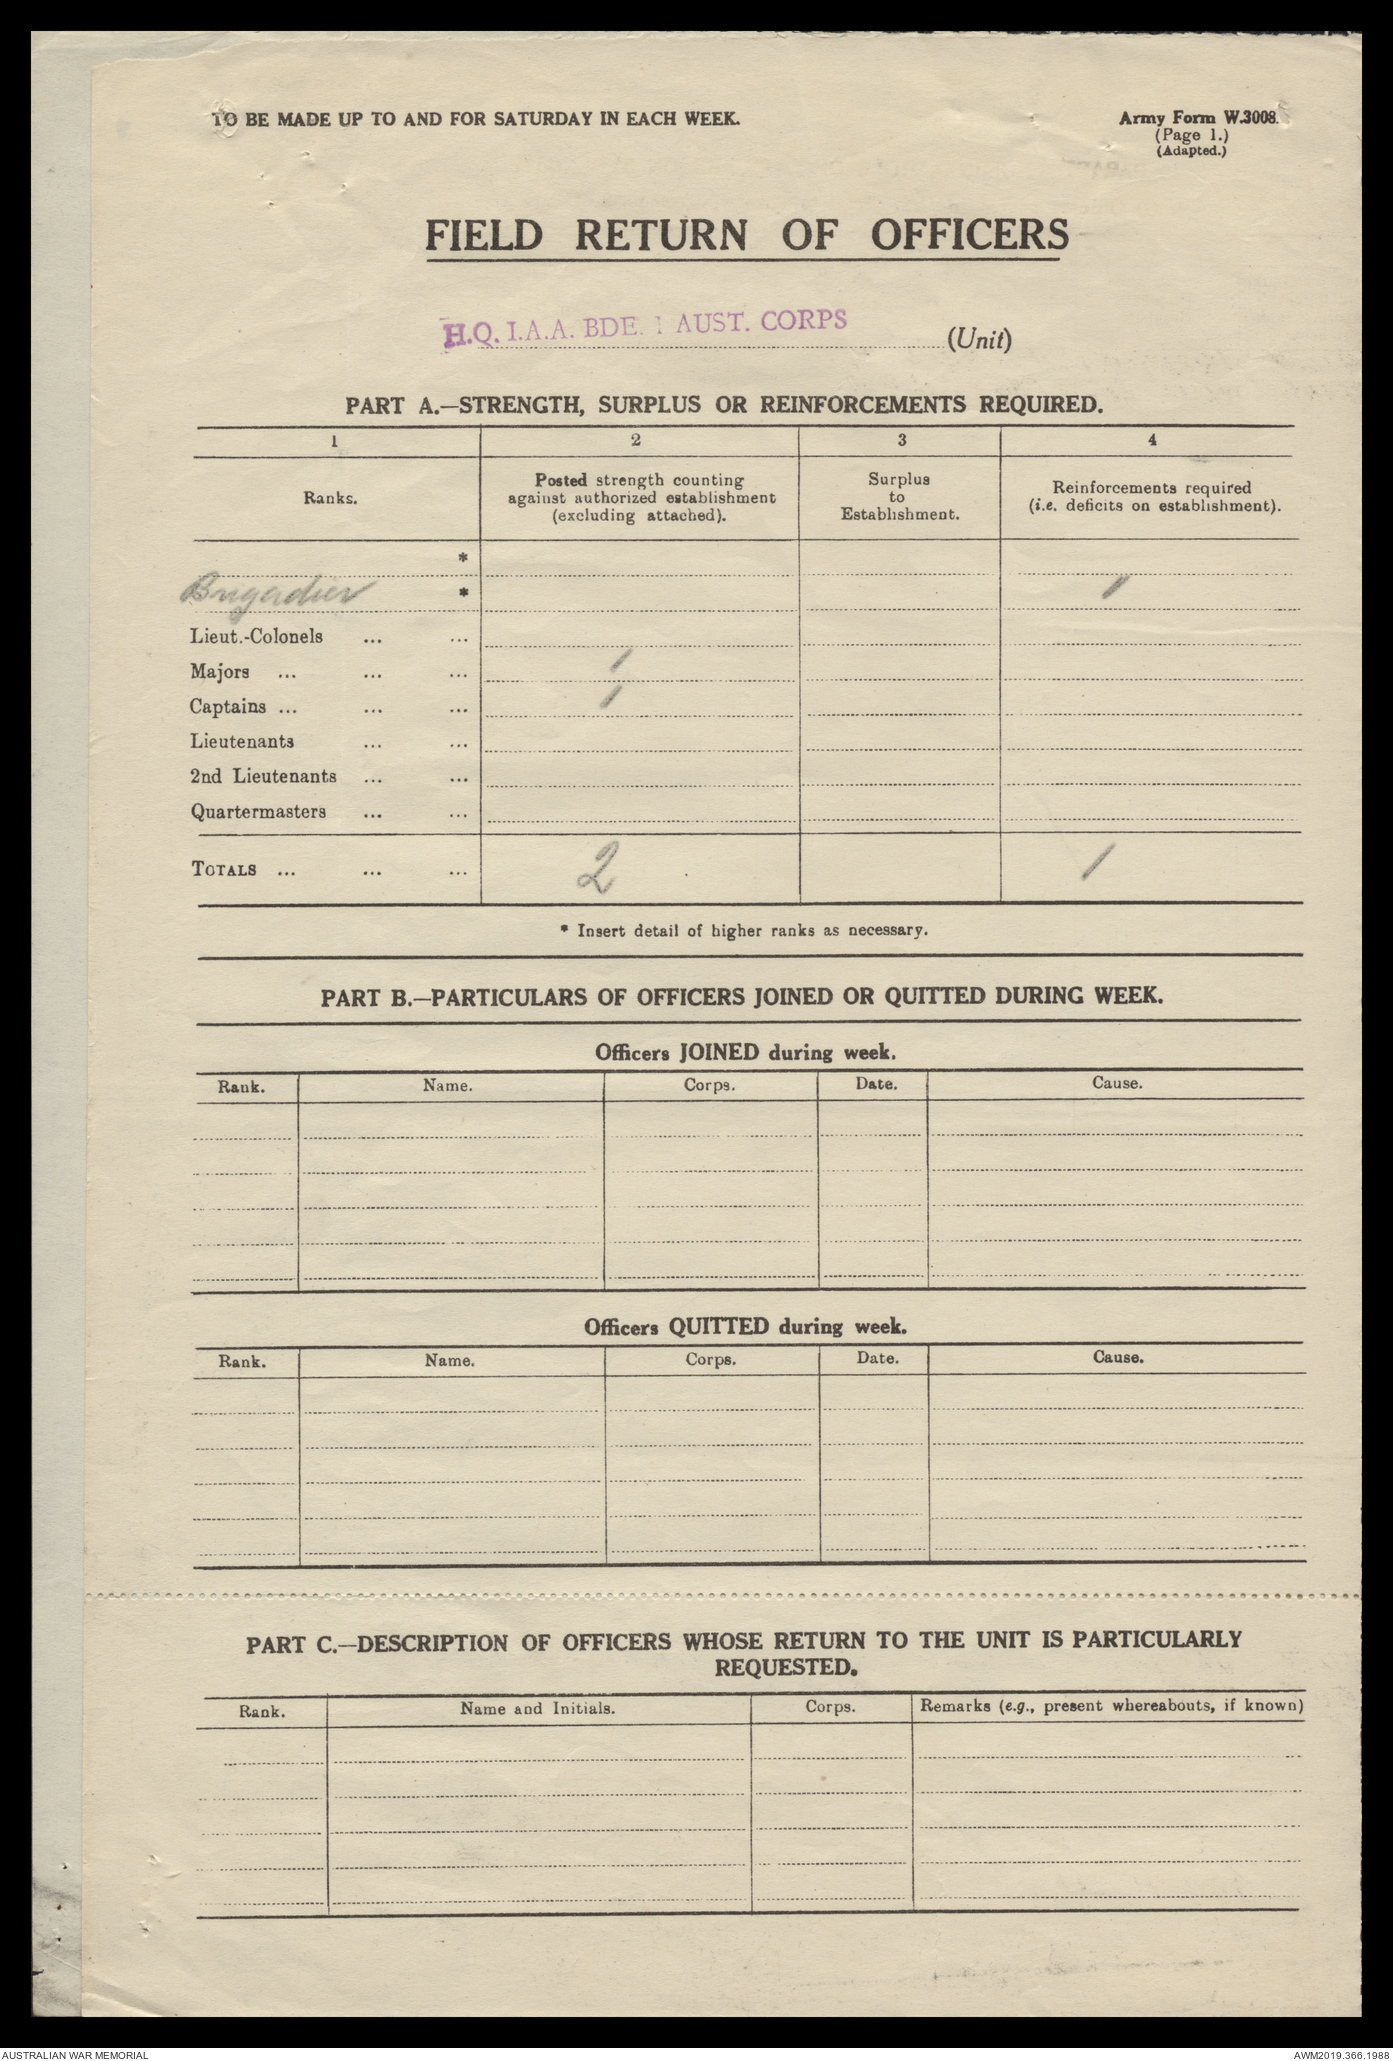 TO BE MADE UP TO AND FOR SATURDAY IN EACH WEEK.
Army Form W.3008.
(Page 1.)
(Adapted.)
FIELD RETURN OF OFFICERS
H.Q. I.A.A. BDE. 1 AUST. CORPS (Unit)
PART A.—STRENGTH, SURPLUS OR REINFORCEMENTS REQUIRED.
1 2 3 4
Ranks.
Posted strength counting
against authorized establishment
(excluding attached).
Surplus
to
Establishment.
Reinforcements required
(i.e. deficits on establishment).
*
Brigadier * 1
Lieut.-Colonels ... ...
Majors ... ... ... 1
Captains ... ... ... 1
Lieutenants ... ...
2nd Lieutenants ... ...
Quartermasters ... ...
TOTALS ... ... ... 2 1
* Insert detail of higher ranks as necessary.
PART B.—PARTICULARS OF OFFICERS JOINED OR QUITTED DURING WEEK.
Officers JOINED during week.
Rank. Name. Corps. Date. Cause.
Officers QUITTED during week.
Rank. Name. Corps. Date. Cause.
PART C.—DESCRIPTION OF OFFICERS WHOSE RETURN TO THE UNIT IS PARTICULARLY
REQUESTED.
Rank. Name and Initials. Corps. Remarks (e.g., present whereabouts, if known)
AUSTRALIAN WAR MEMORIAL AWM2019.366.1988